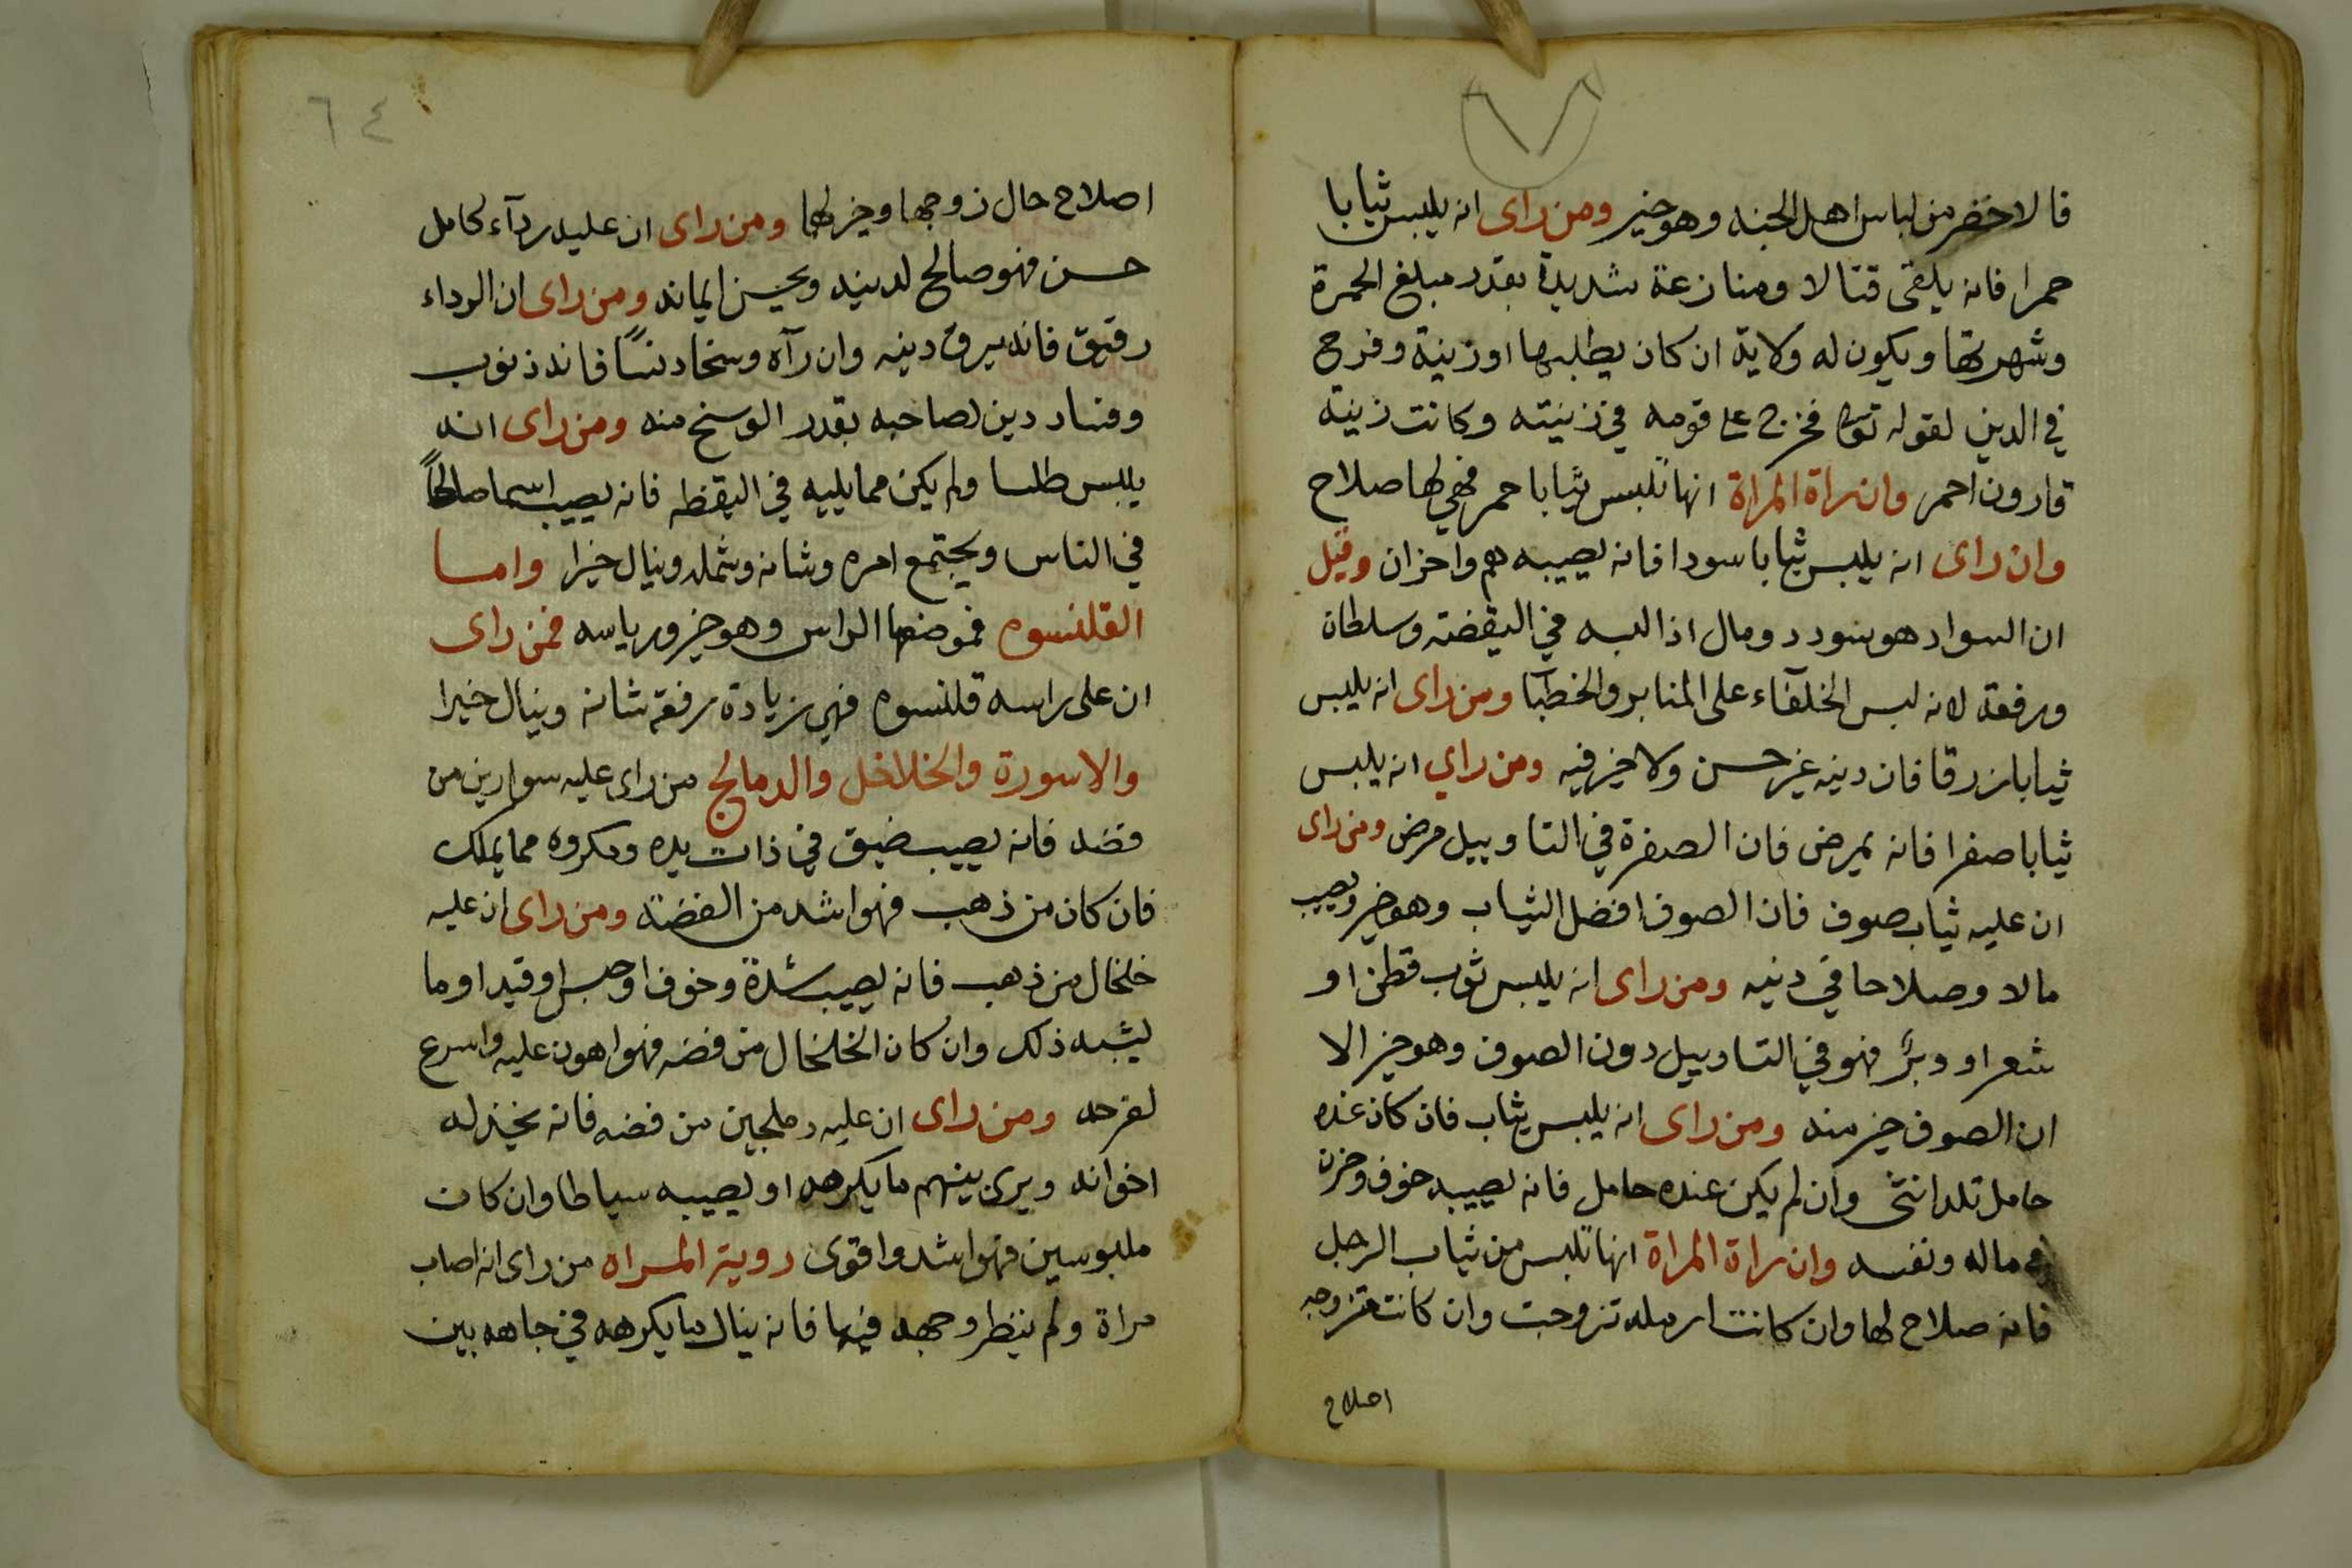 فالاخضر من لباس اهل الجنه وهو خير ومن راى انه يلبس ثيابا
حمرا فانه يلقى قتالا ومنازعة شديدة بقدر مبلغ الحمرة
وشهرتها ويكون له ولاية ان كان يطلبها او زينة وفرح
في الدين لقوله تعالى فخرج على قومه في زينته وكانت زينة
قارون احمر وان راة المراة انها تلبس ثيابا حمر فهي لها صلاح
وان راى انه يلبس ثيابا سودا فانه يصيبه هم واحزان وقيل
ان السواد هو سودد ومال اذا لبسه في اليقضته وسلطان
ورفعة لانه لبس الخلفآء على المنابر والخطبآ ومن راى انه يلبس
ثيابا زرقا فان دينه غير حسن ولا خير فيه ومن راي انه يلبس
ثيابا صفرا فانه يمرض فان الصفرة في التاوييل مرض ومن راى
ان عليه ثياب صوف فان الصوف افضل الثياب وهو خير ويصيب
مالا وصلاحا في دينه ومن راى انه يلبس ثوب قطن او
شعر او وبر فهو في التاوييل دون الصوف وهو خير الا
ان الصوف خير منه ومن راى انه يلبس ثياب فان كان عنده
حامل تلد انثى وان لم يكن عنده حامل فانه يصيبه خوف وحزن
في ماله ونفسه وان راة المراة انها تلبس من ثياب الرجل
فانه صلاح لها وان كانت ارمله تزوجت وان كانت متزوجه
اصلاح
٦٤
اصلاح حال زوجها وخير لهما ومن راى ان عليه ردآء كامل
حسن فهو صالح لدينه ويحسن ايمانه ومن راى ان الرداء
رقيق فانه يرق دينه وان رآه وسخا دنسًا فانه ذنوب
وفساد دين لصاحبه بقدر الوسخ منه ومن راى انه
يلبس طلسا ولم يكن مما يلبسه في اليقظه فانه يصيب اسما صالحًا
في الناس ويجتمع امره وشانه وشمله وينال خيرا واما
القلنسوه فموضعها الراس وهو خير ورياسه فمن راى
ان على راسه قلنسوه فهي زيادة رفعة شانه وينال خيرا
والاسورة والخلاخل والدمالج من راى عليه سوارين من
فضه فانه يصيب ضيق في ذات يده ومكروه مما يملك
فان كان من ذهب فهو اشد من الفضته ومن راى ان عليه
خلخال من ذهب فانه يصيب شدة وخوف او حبس او قيد او ما
يشبه ذلك وان كان الخلخال من فضه فهو اهون عليه واسرع
لفرحه ومن راى ان عليه دملجين من فضه فانه يخذله
اخوانه ويرى بينهم ما يكرهه او يصيبه سياطا وان كان
ملبوسين فهو اشد واقوى روية المراه من راى انه اصاب
مراة ولم ينظر وجهه فيها فانه ينال ما يكرهه في جاهه بين